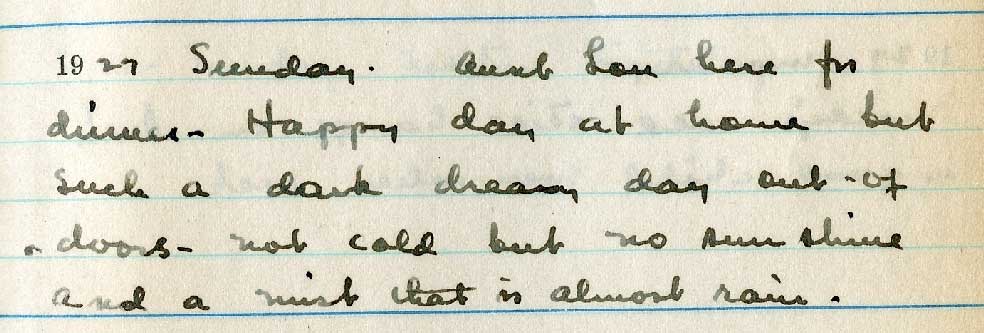 1927 Sunday. Aunt Lou here for
dinner - Happy day at home but
such a dark dreary day out-of
-doors - not cold but no sun shine
and a mist that is almost rain.